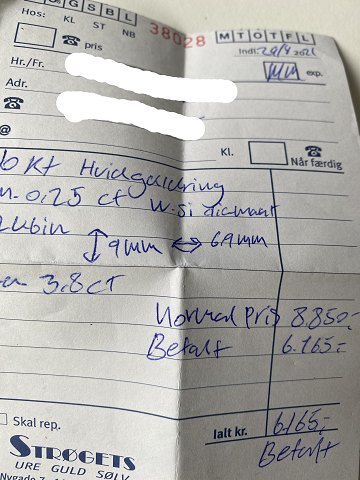 G S B L
Hos: KL ST NB 38028 M T O T F L
☎ pris Indl:
exp.
Hr./Fr.
Adr.
☎ Kl. ☎ Når færdig
@
Kt Hvidguldring
0.25 ct W.Si diamant
Rubin
9mm ↔ 6.9mm
3.8 CT
Normal Pris 8.850,-
Betalt 6.165,-
Skal rep. Ialt kr. 6165,-
Betalt
STRØGETS
URE GULD SØLV
Nygade